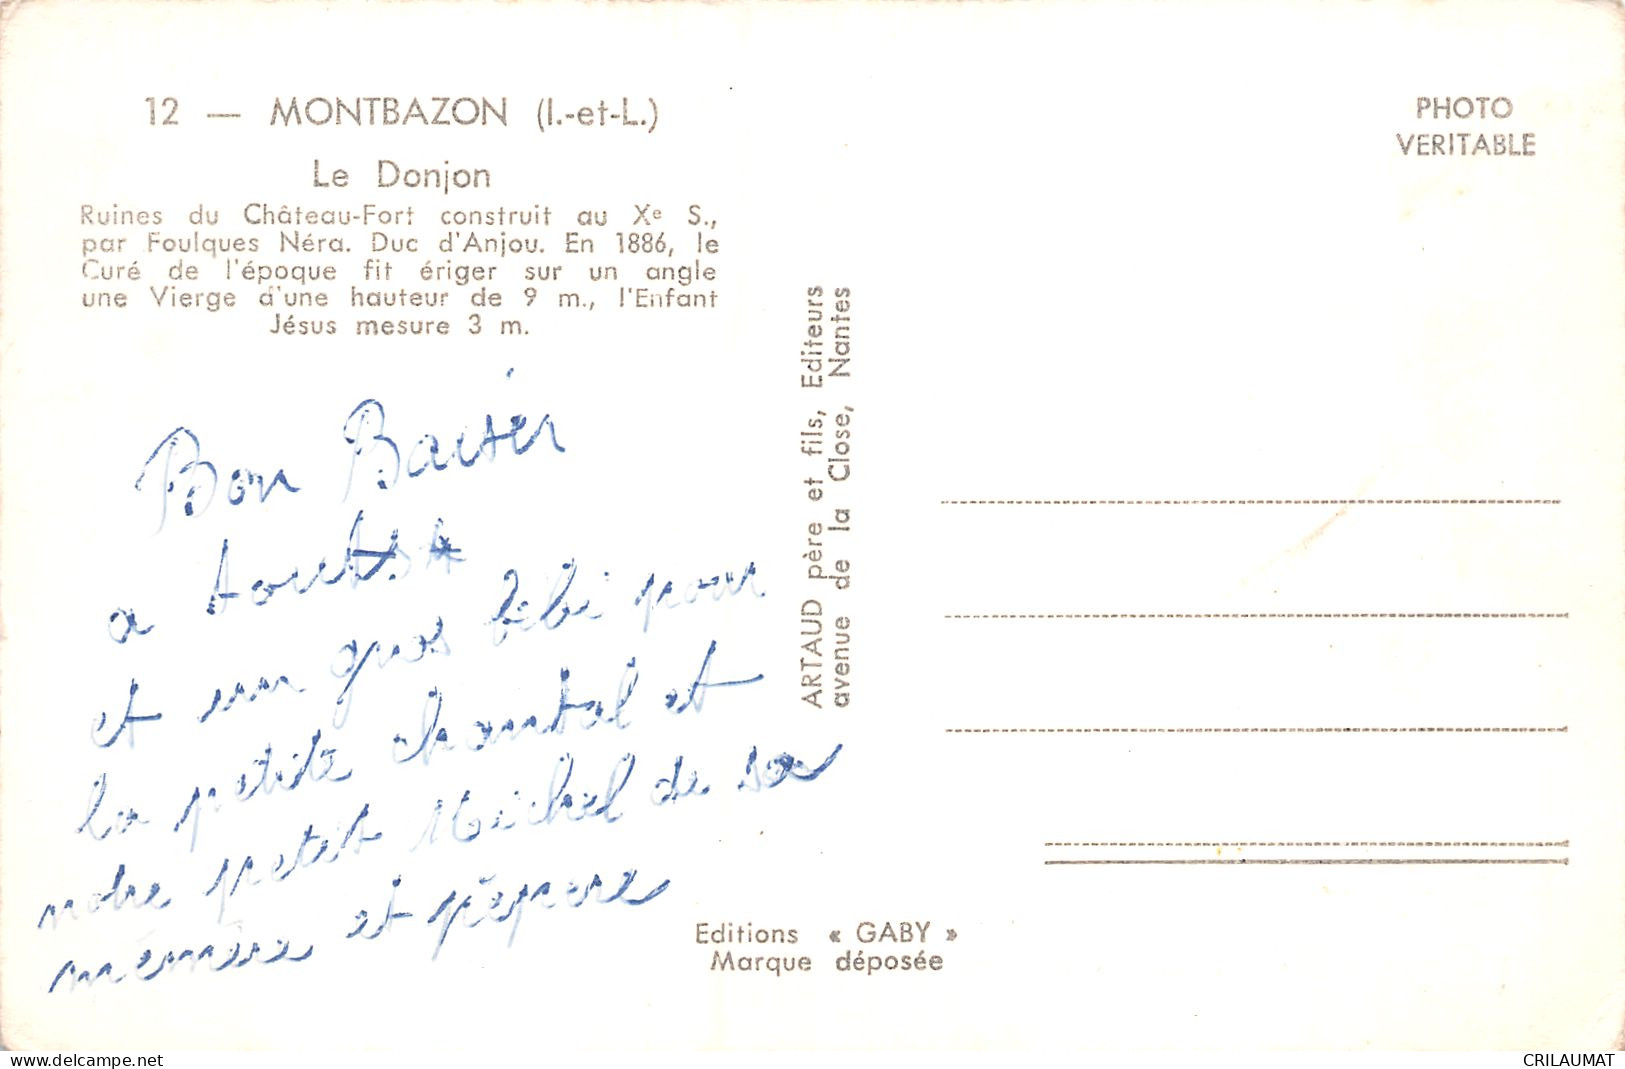 12 — MONTBAZON (I.-et-L.)
Le Donjon
Ruines du Château-Fort construit au Xe S.,
par Foulques Néra. Duc d'Anjou. En 1886, le
Curé de l'époque fit ériger sur un angle
une Vierge d'une hauteur de 9 m., l'Enfant
Jésus mesure 3 m.
PHOTO
VERITABLE
Bon Baiser
a tout
et un gros bébé pour
la petite chantal et
notre petit Michel de sa
mémère et pépère
ARTAUD père et fils, Editeurs
avenue de la Close, Nantes
Editions « GABY »
Marque déposée
delcampe.net
CRILAUMAT